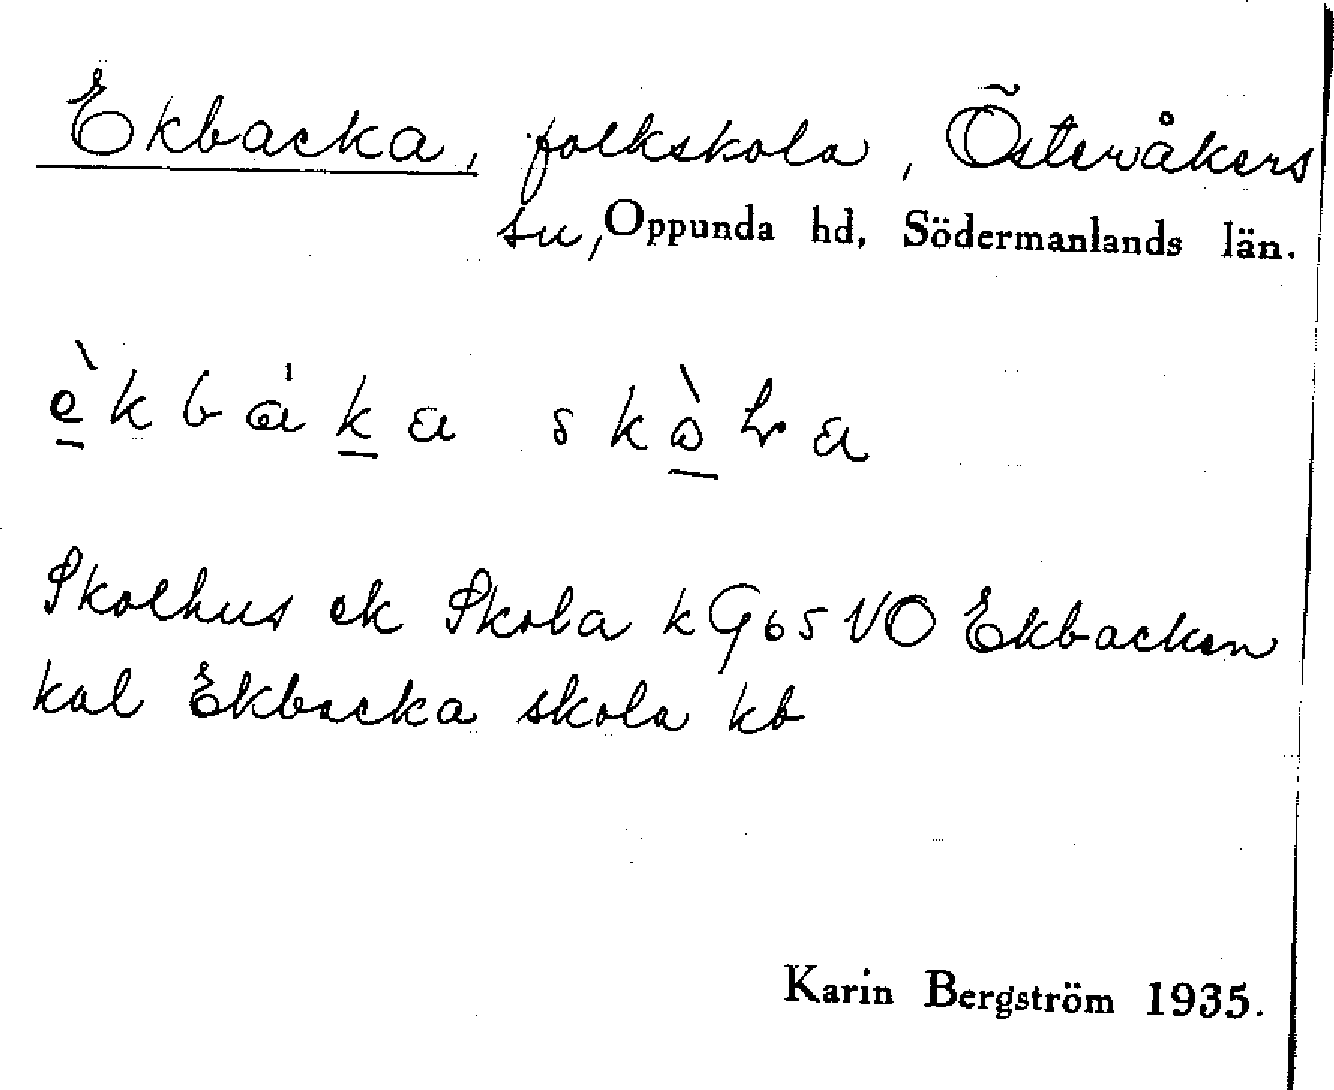 Ekbacka, folkskola, Österåkers
sn, Oppunda hd, Södermanlands län.
èkbáka skòla
Skolhus ek Skola kG65NO Ekbacken
kal Ekbacka skola kb
Karin Bergström 1935.